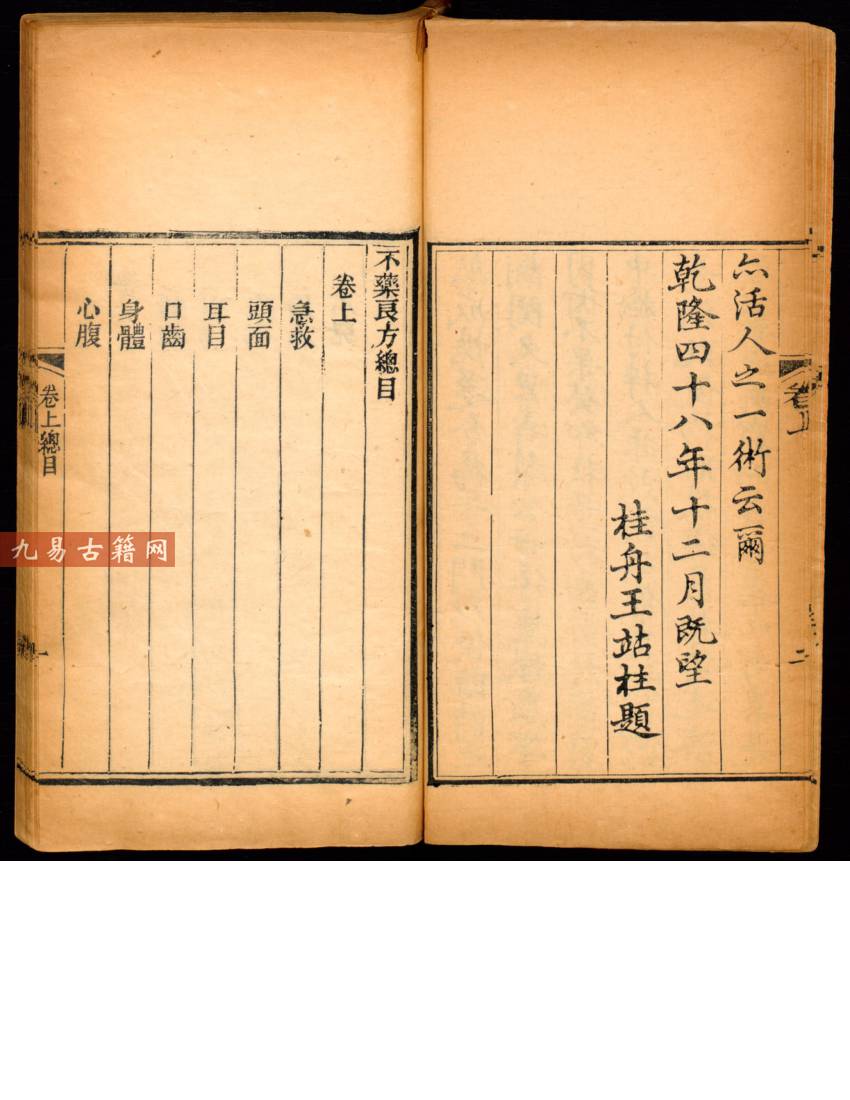 亦活人之一術云爾
乾隆四十八年十二月既望
桂舟王站柱題
卷上
二
不藥良方總目
卷上
急救
頭面
耳目
口齒
身體
心腹
卷上總目
一
九易古籍网